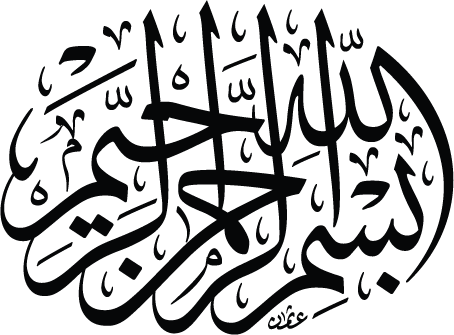 بِسْمِ اللَّهِ الرَّحْمَٰنِ الرَّحِيمِ
عثمان